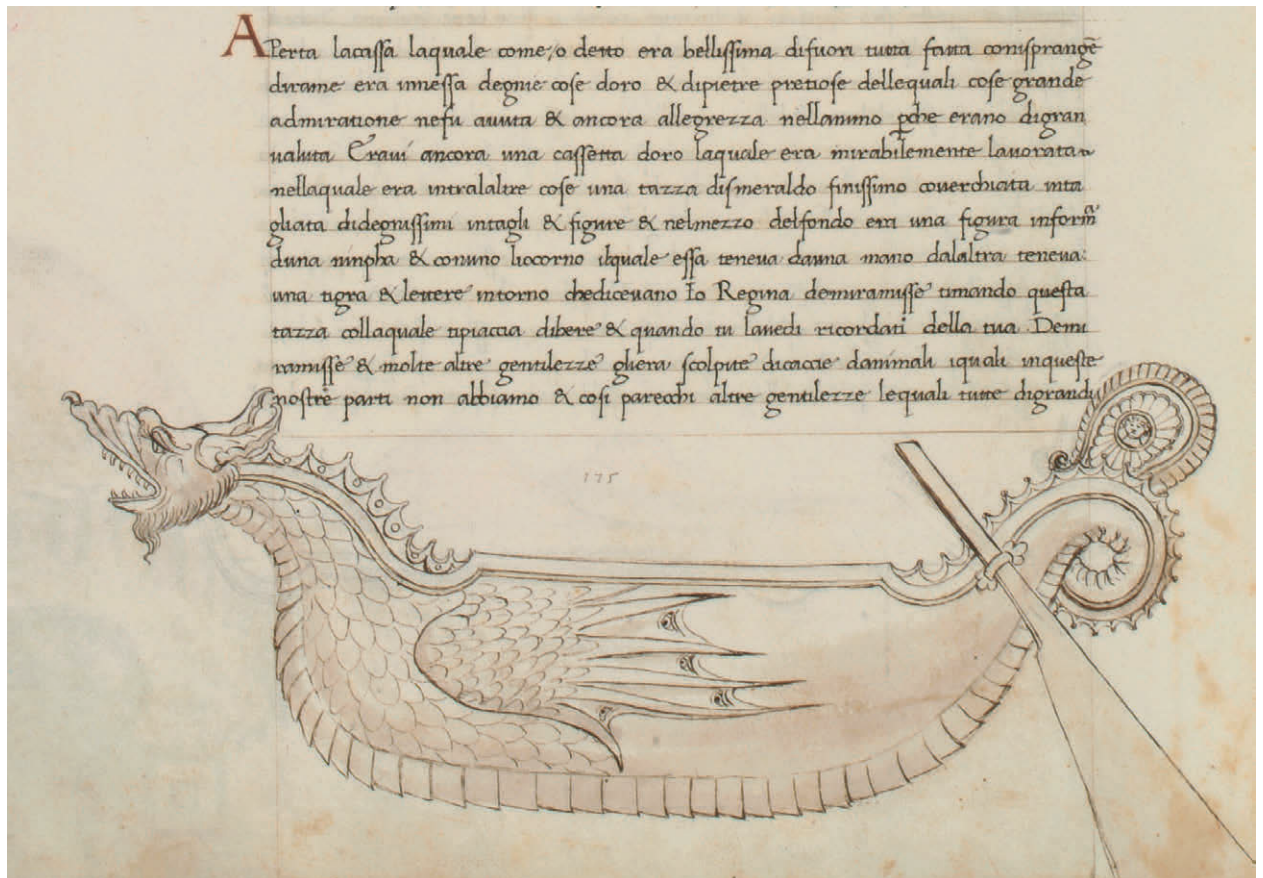 APerta lacassa laquale come, o detto era bellissima difuori tutta fatta conispranghe
dirame era inmessa degnie cose doro & dipietre pretiose dellequali cose grande
admiratione nefu avuta & ancora allegrezza nellanimo pche erano digran
valuta Eravi ancora una cassetta doro laquale era mirabilemente lavorata
nellaquale era intralaltre cose una tazza dismeraldo finissimo coverchiata inta
gliata didegnissimi intagli & figure & nelmezzo delfondo era una figura informa
duna ninpha & conuno liocorno ilquale essa teneva dauna mano dalaltra teneva
una tigra & lettere intorno chedicevano Io Regina demiramisse timando questa
tazza collaquale tipiaccia dibere & quando tu lavedi ricordati della tua Demi
ramisse & molte altre gentilezze ghera scolpite dicaccie danimali iquali inqueste
nostre parti non abbiamo & cosi parecchi altre gentilezze lequali tutte digrandi
175